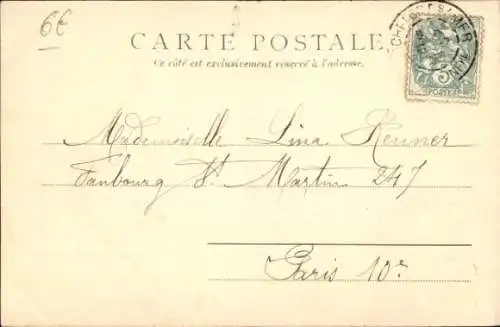 6€
CARTE POSTALE
Ce côté est exclusivement réservé à l'adresse.
POSTES
Mademoiselle Lina Renner
Faubourg St Martin 247
Paris 10e